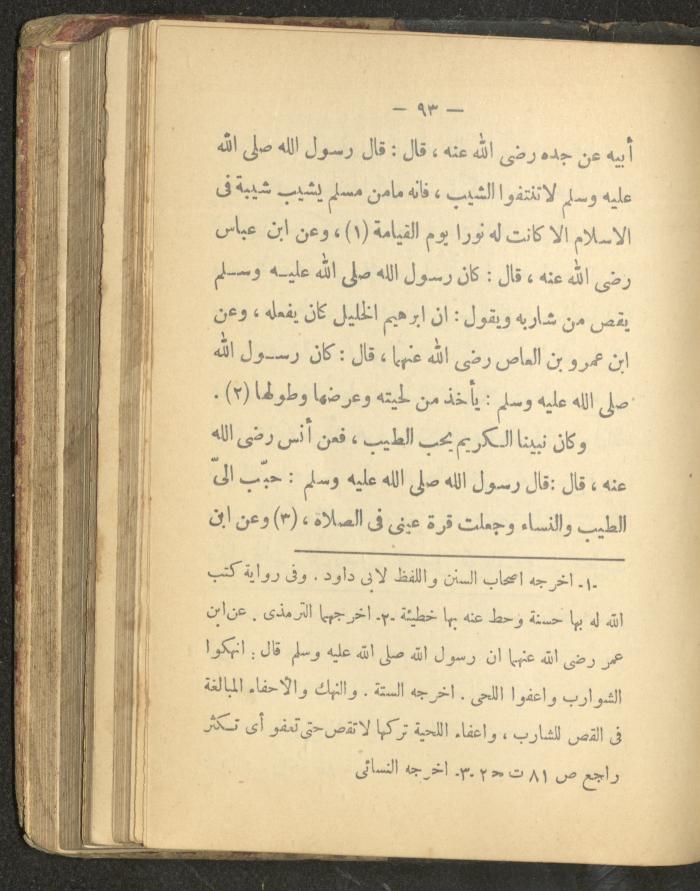 — ٩٣ —
أبيه عن جده رضى الله عنه ، قال : قال رسول الله صلى الله
عليه وسلم لاتنتفوا الشيب ، فانه مامن مسلم يشيب شيبة فى
الاسلام الا كانت له نورا يوم القيامة (١) ، وعن ابن عباس
رضى الله عنه ، قال : كان رسول الله صلى الله عليه وسلم
يقص من شاربه ويقول : ان ابرهيم الخليل كان يفعله ، وعن
ابن عمرو بن العاص رضى الله عنهما ، قال : كان رسول الله
صلى الله عليه وسلم : يأخذ من لحيته وعرضها وطولها (٢) .
وكان نبينا الكريم يحب الطيب ، فعن أنس رضى الله
عنه ، قال :قال رسول الله صلى الله عليه وسلم : حبّب الىّ
الطيب والنساء وجعلت قرة عينى فى الصلاة ، (٣) وعن ابن
-١- اخرجه اصحاب السنن واللفظ لابى داود . وفى رواية كتب
الله له بها حسنة وحط عنه بها خطيئة -٢- اخرجهما الترمذى . عن ابن
عمر رضى الله عنهما ان رسول الله صلى الله عليه وسلم قال : انهكوا
الشوارب واعفوا اللحى . اخرجه الستة . والنهك والاحفاء المبالغة
فى القص للشارب ، واعفاء اللحية تركها لاتقص حتى تعفو أى تكثر
راجع ص ٨١ ت ح٢ -٣- اخرجه النسائى